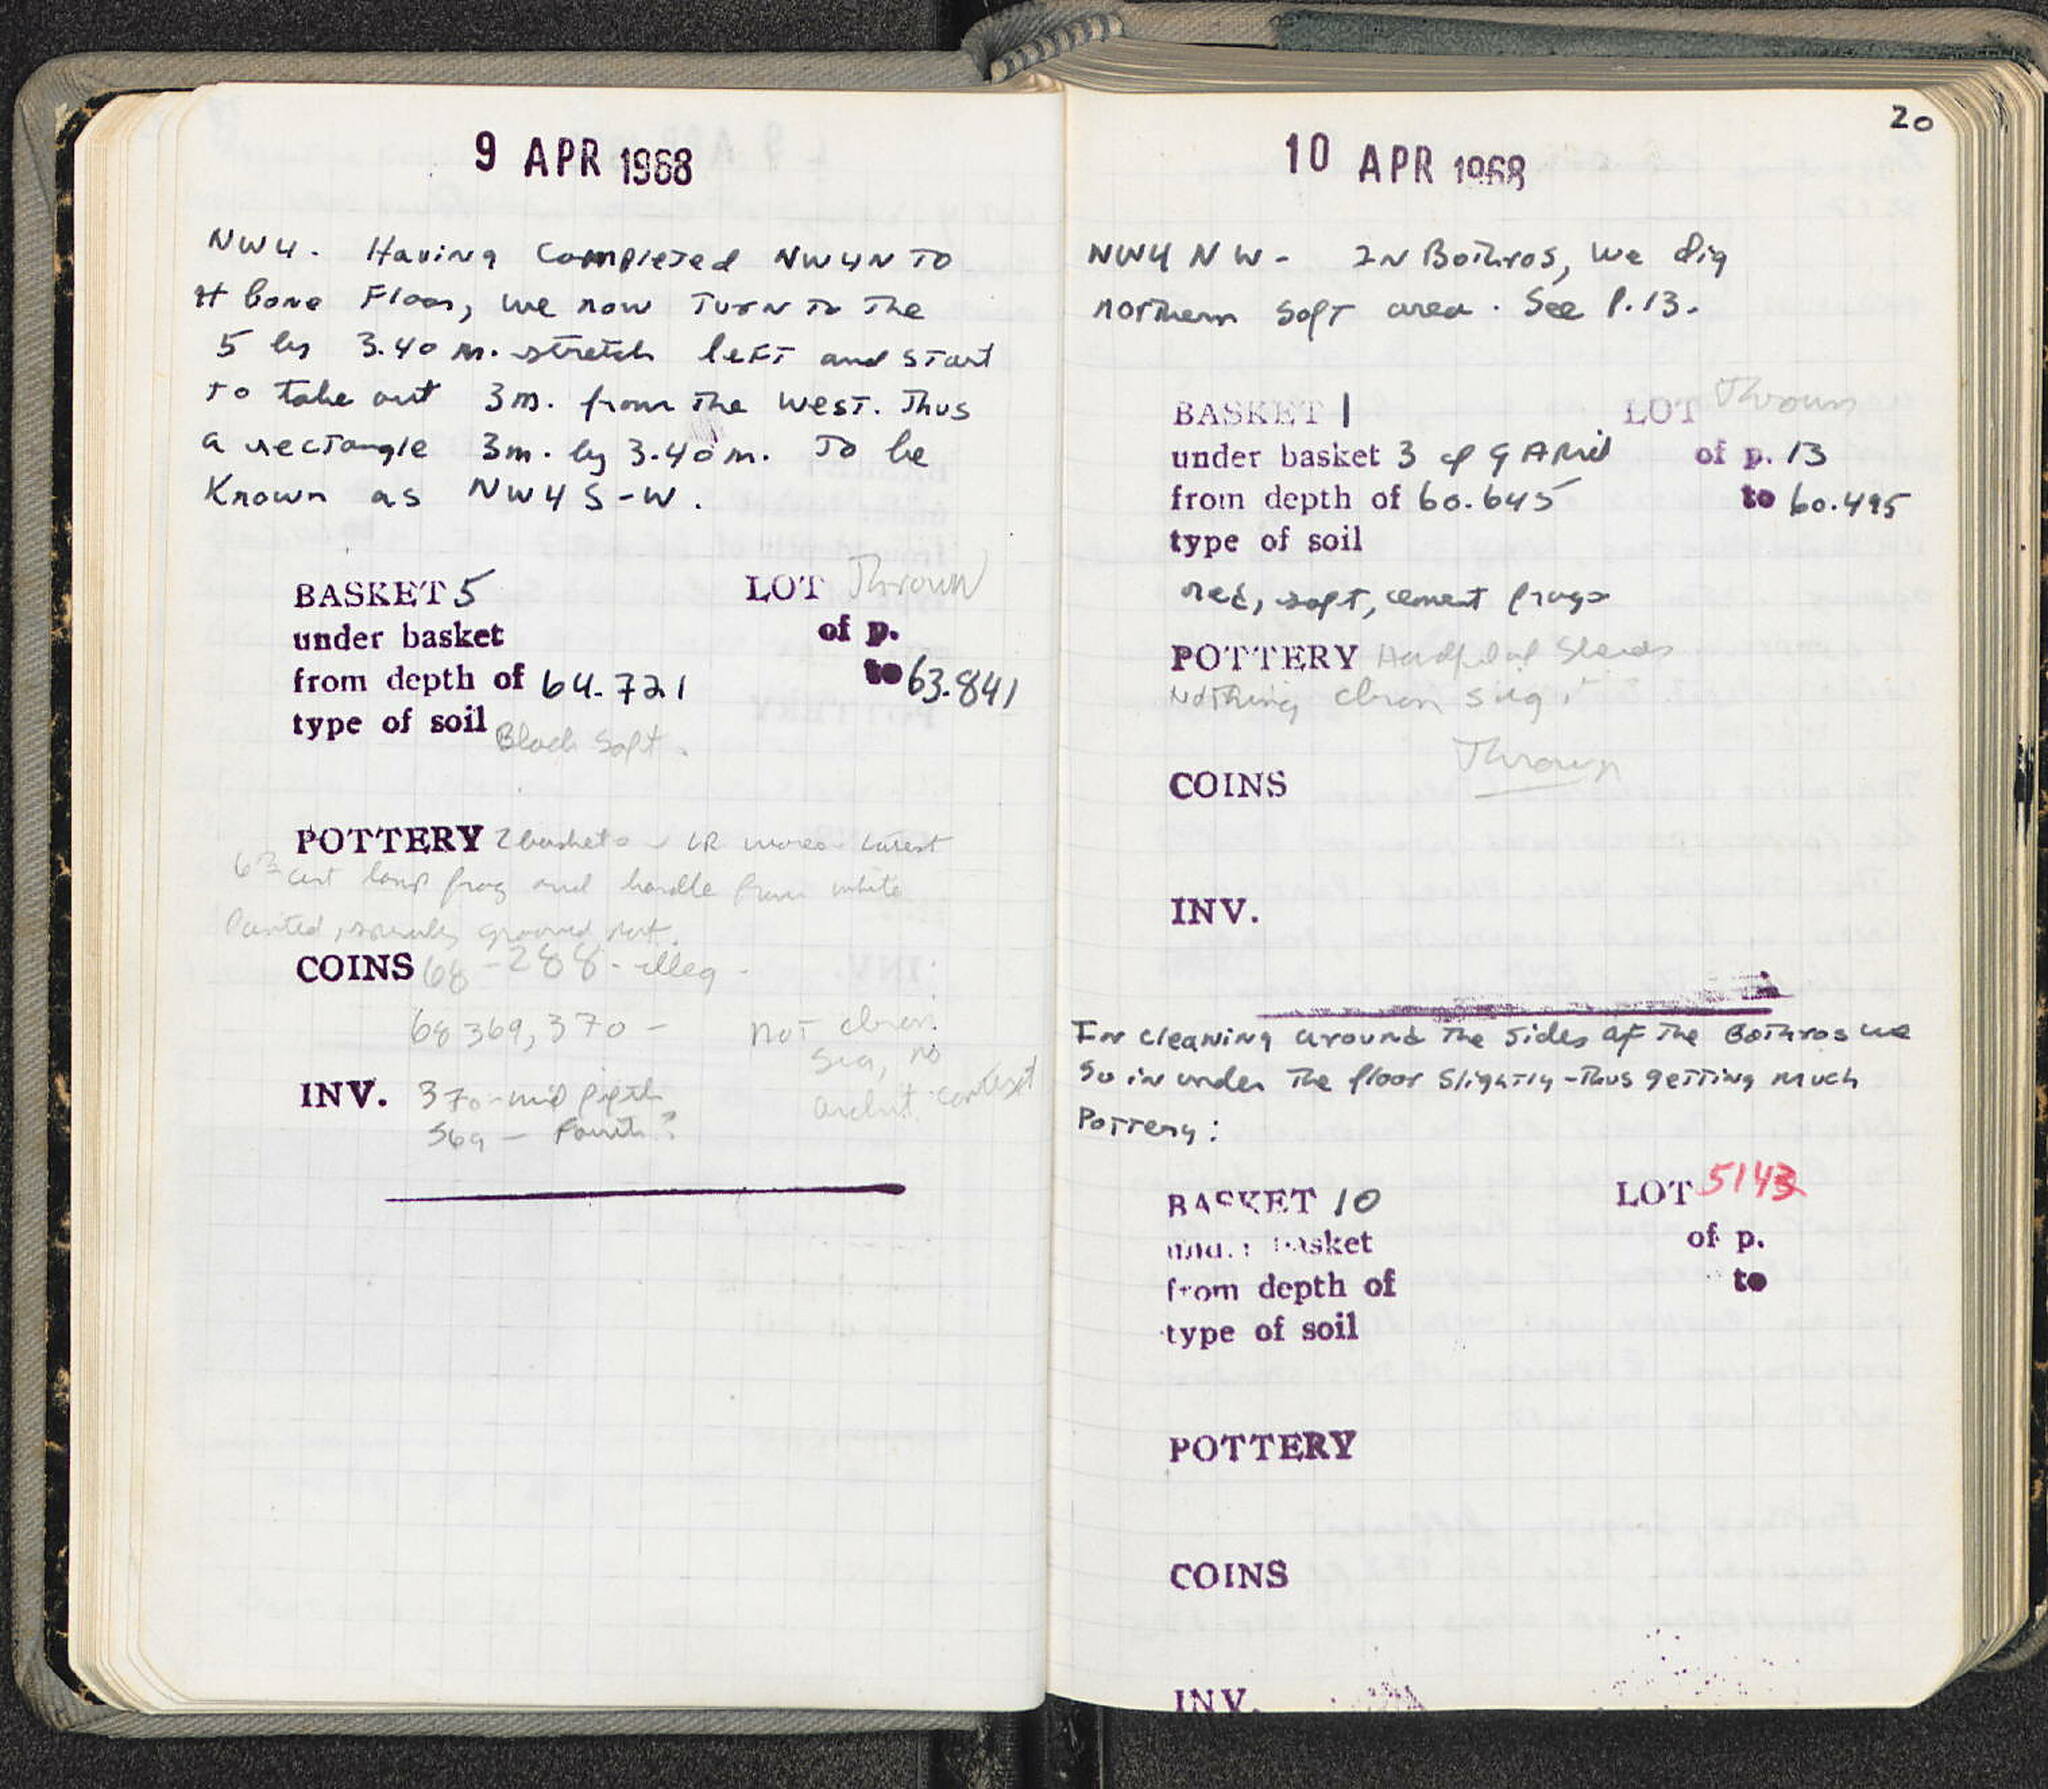 9 APR 1968
NW4. Having Completed NW4N To
Bone Floor, we now Turn To The
5 by 3.40 m. stretch left and start
to take out 3m. from The west. Thus
a rectangle 3m. by 3.40m. To be
Known as NW4 S-W.
BASKET 5 LOT Thrown
under basket of p.
from depth of 64.721 to 63.841
type of soil Black Soft.
POTTERY 2 baskets - LR wares Latest
6th cent lamp frag and handle from white
Painted, grooved pot.
COINS 68-288-illeg-
68 369, 370 - not chron.
sig, no
INV. 370-mid fifth archit. context
369 - Fourth?
20
10 APR 1968
NW4 NW- In Bothros, we dig
northern soft area. See P.13.
BASKET 1 LOT Thrown
under basket 3 of 9 April of p. 13
from depth of 60.645 to 60.495
type of soil
red, soft, cement frags
POTTERY Handful of Sherds
Nothing chron sig.
Thrown
COINS
INV.
In cleaning around The sides of The Bothros we
go in under The floor slightly - Thus getting much
Pottery:
BASKET 10 LOT 5143
under basket of p.
from depth of to
type of soil
POTTERY
COINS
INV.